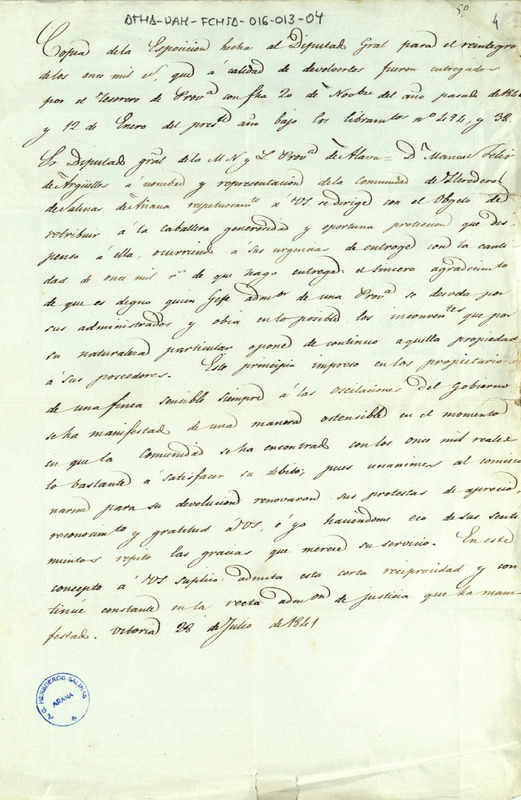 ATHA-DAH-FCMSD-016-013-04
4
Copia de la Esposicion hecha al Diputado Gral para el reintegro
de los once mil rs. que á calidad de devolverlos fueron entregados
por el Tesorero de Prova con fha 20 de Novbre del año pasado de 1840
y 12 de Enero del preste año bajo los libramtos nos 494, y 38.
Sr Diputado gral de la M N y L Prova de Alava = Dn Manuel Felix
de Argüelles á nombre y representacion de la Comunidad de Herederos
de Salinas de Añana respetuosamte á VS. se dirige con el Objeto de
retribuir á la caballera generosidad y oportuna proteccion que dis
penso á ella, ocurriendo á sus urgencias de entrega con la canti
dad de once mil rs de que hago entrega: el sincero agradecimto
de que es digno quien Gefe admor de una Prova se desvela por
sus administrados y obia en lo posible los inconvenstes que por
su naturaleza particular opone de continuo aquella propiedad
á sus poseedores. Este principio impreso en los propietarios
de una finca sensible siempre á las oscilaciones del Gobierno
se ha manifestado de una manera ostensible en el momento
en que la Comunidad se ha encontrado con los once mil reales
lo bastante á satisfacer su debito; pues unanimes al comisio
narme para su devolucion renovaron sus protestas de aprecio,
reconocimto y gratitud á VS, é yo haciendome eco de sus senti
mientos repito las gracias que merece su servicio. En este
concepto á VS suplico admita esta corta reciprocidad y con
tinue constante en la recta admon de justicia que ha mani
festado. Vitoria 28 de Julio de 1841
A. C. HEREDEROS SALINAS
AÑANA